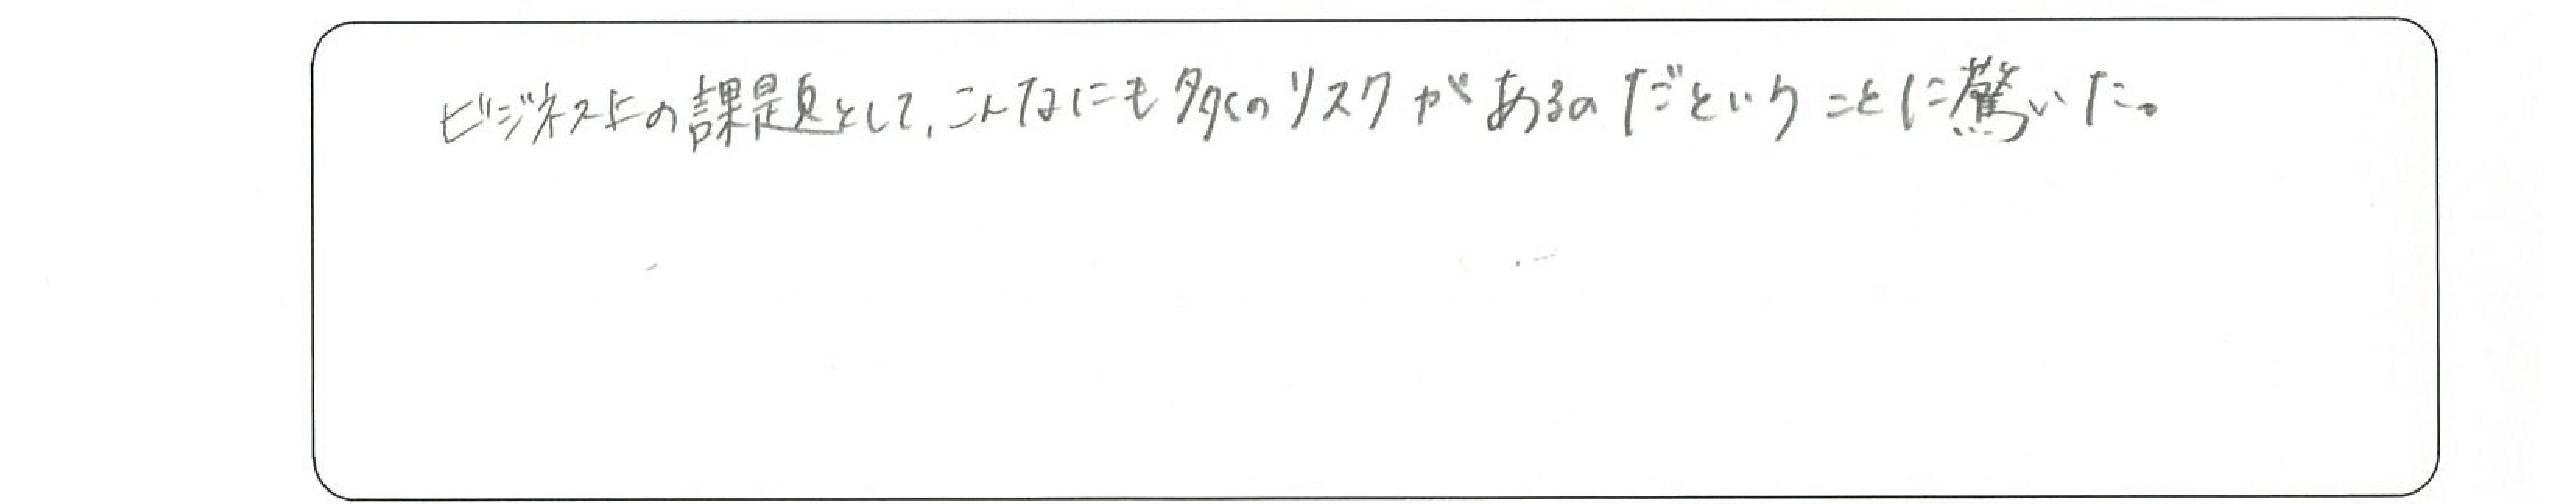 ビジネス上の課題として、こんなにも多くのリスクがあるのだということに驚いた。